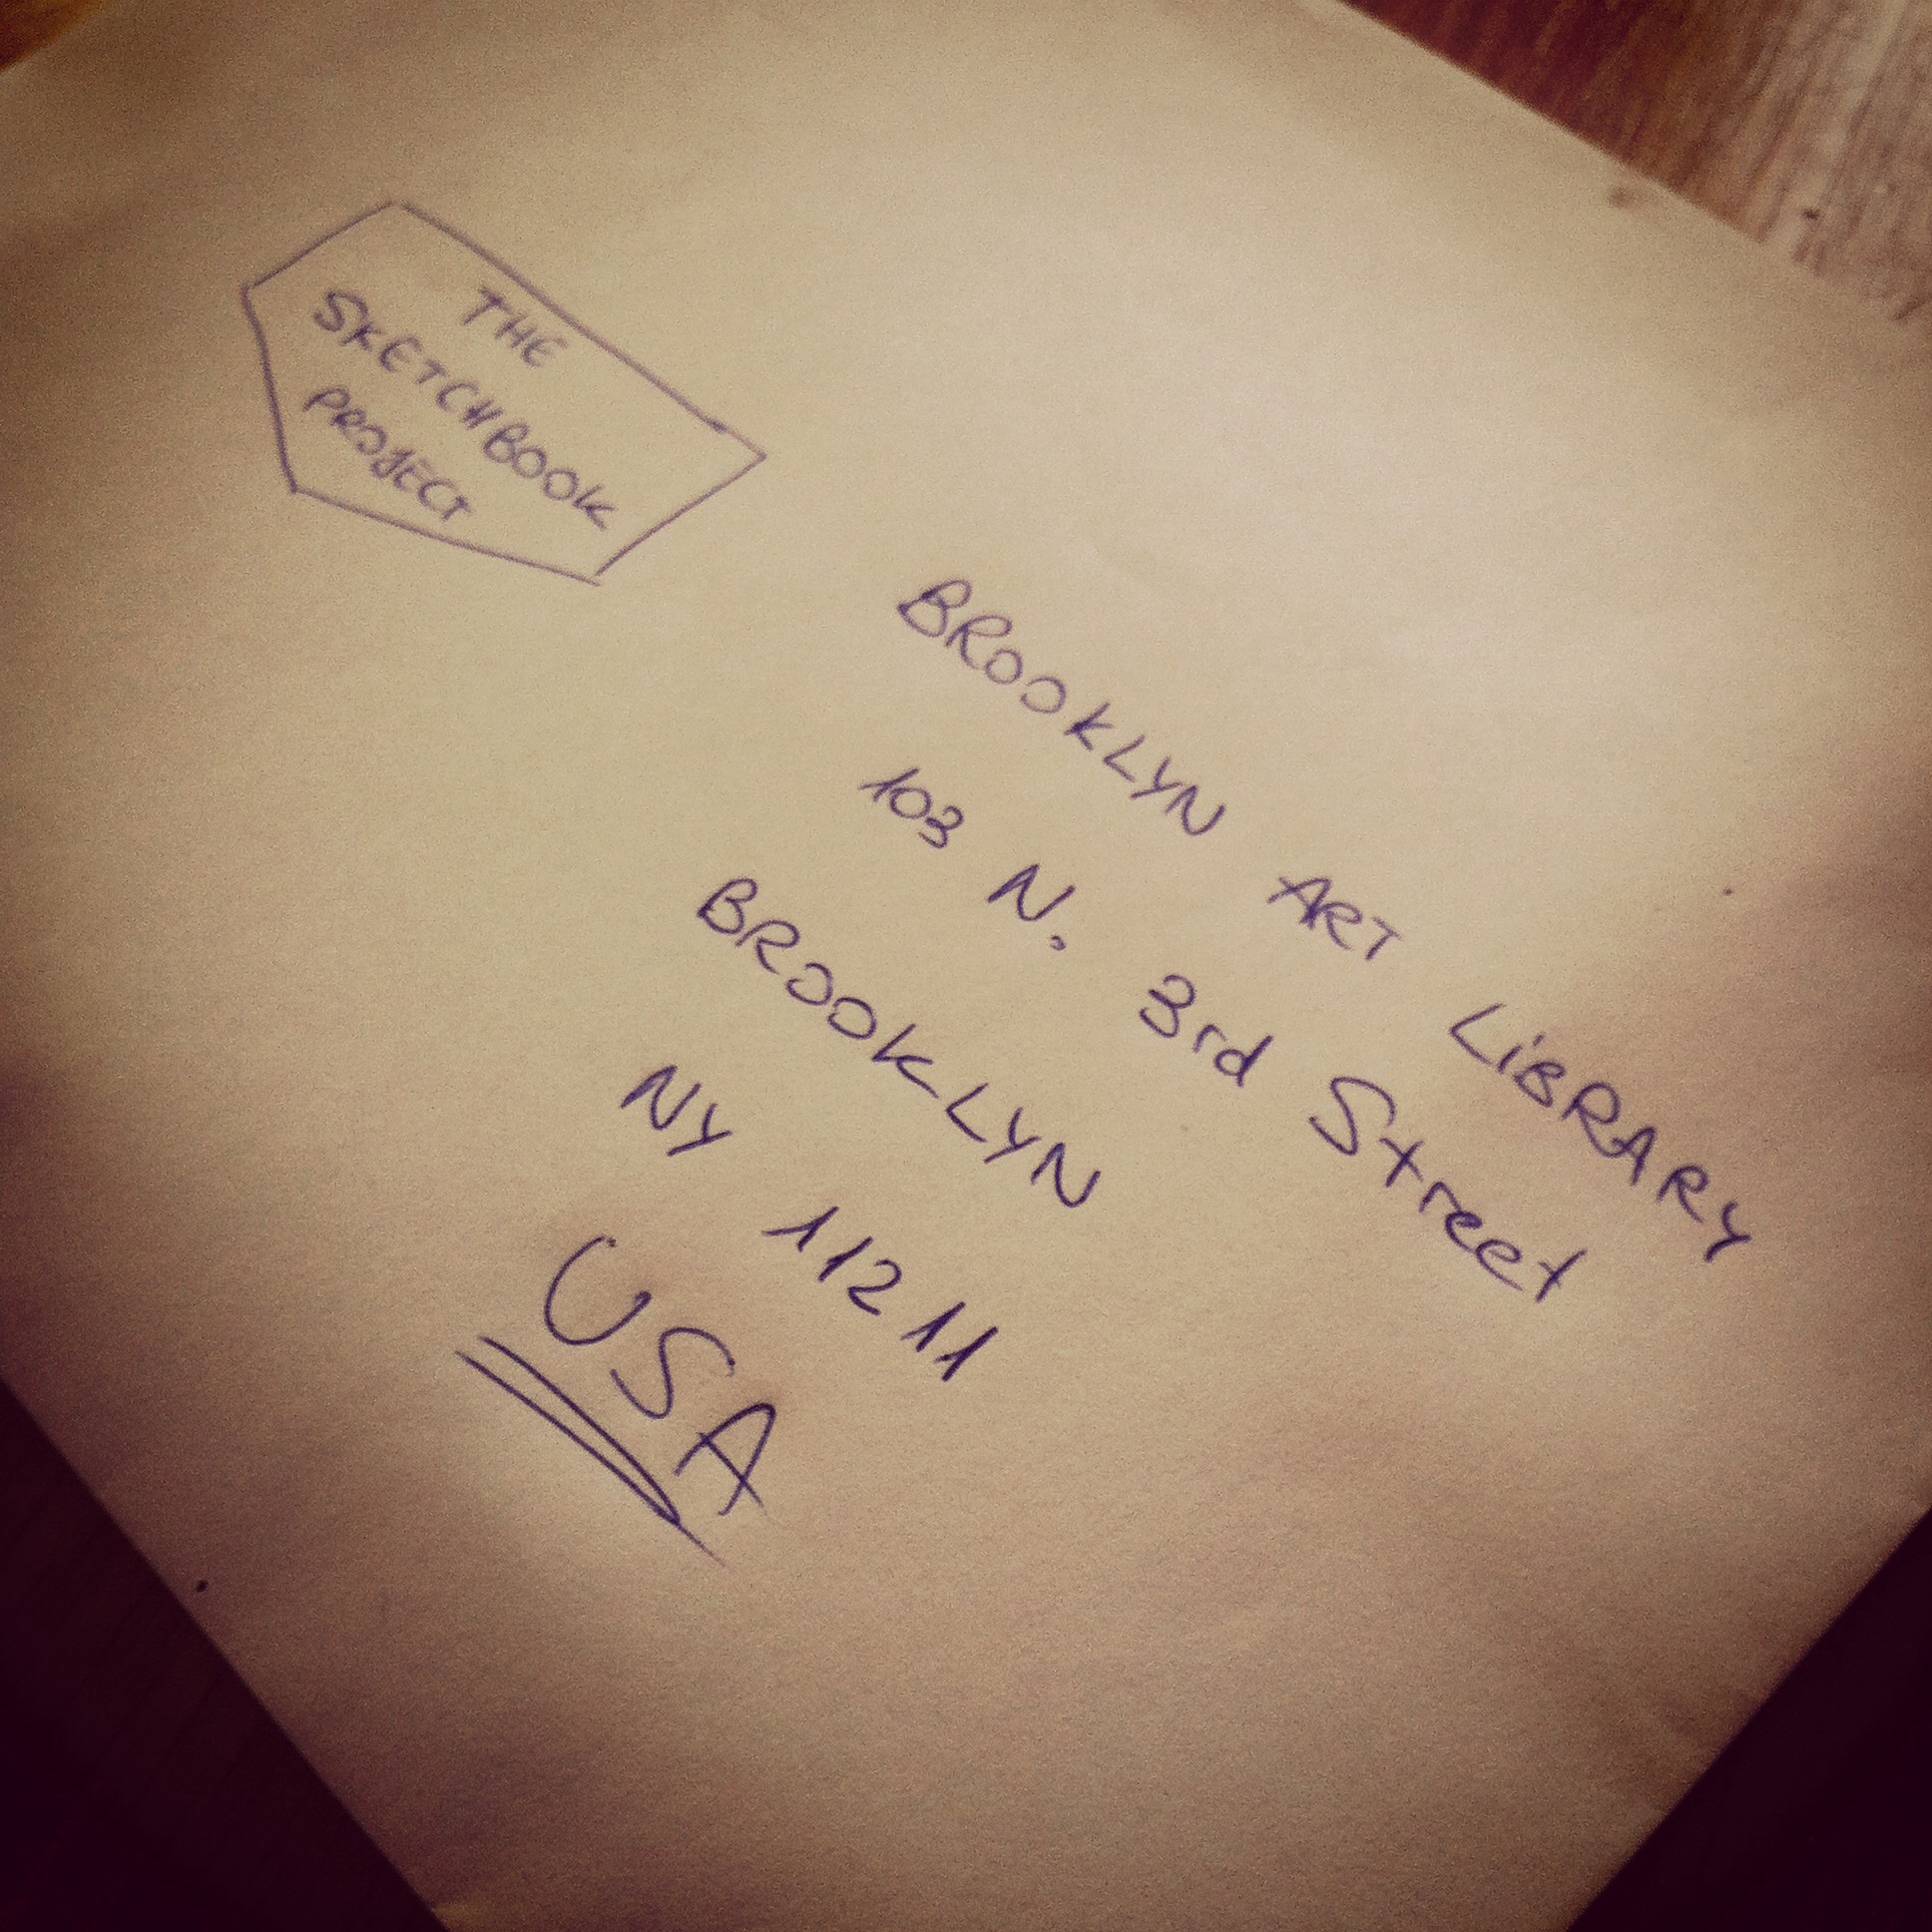 THE
SKETCHBOOK
PROJECT
BROOKLYN ART LiBRARY
103 N. 3rd Street
BROOKLYN
NY 11211
USA